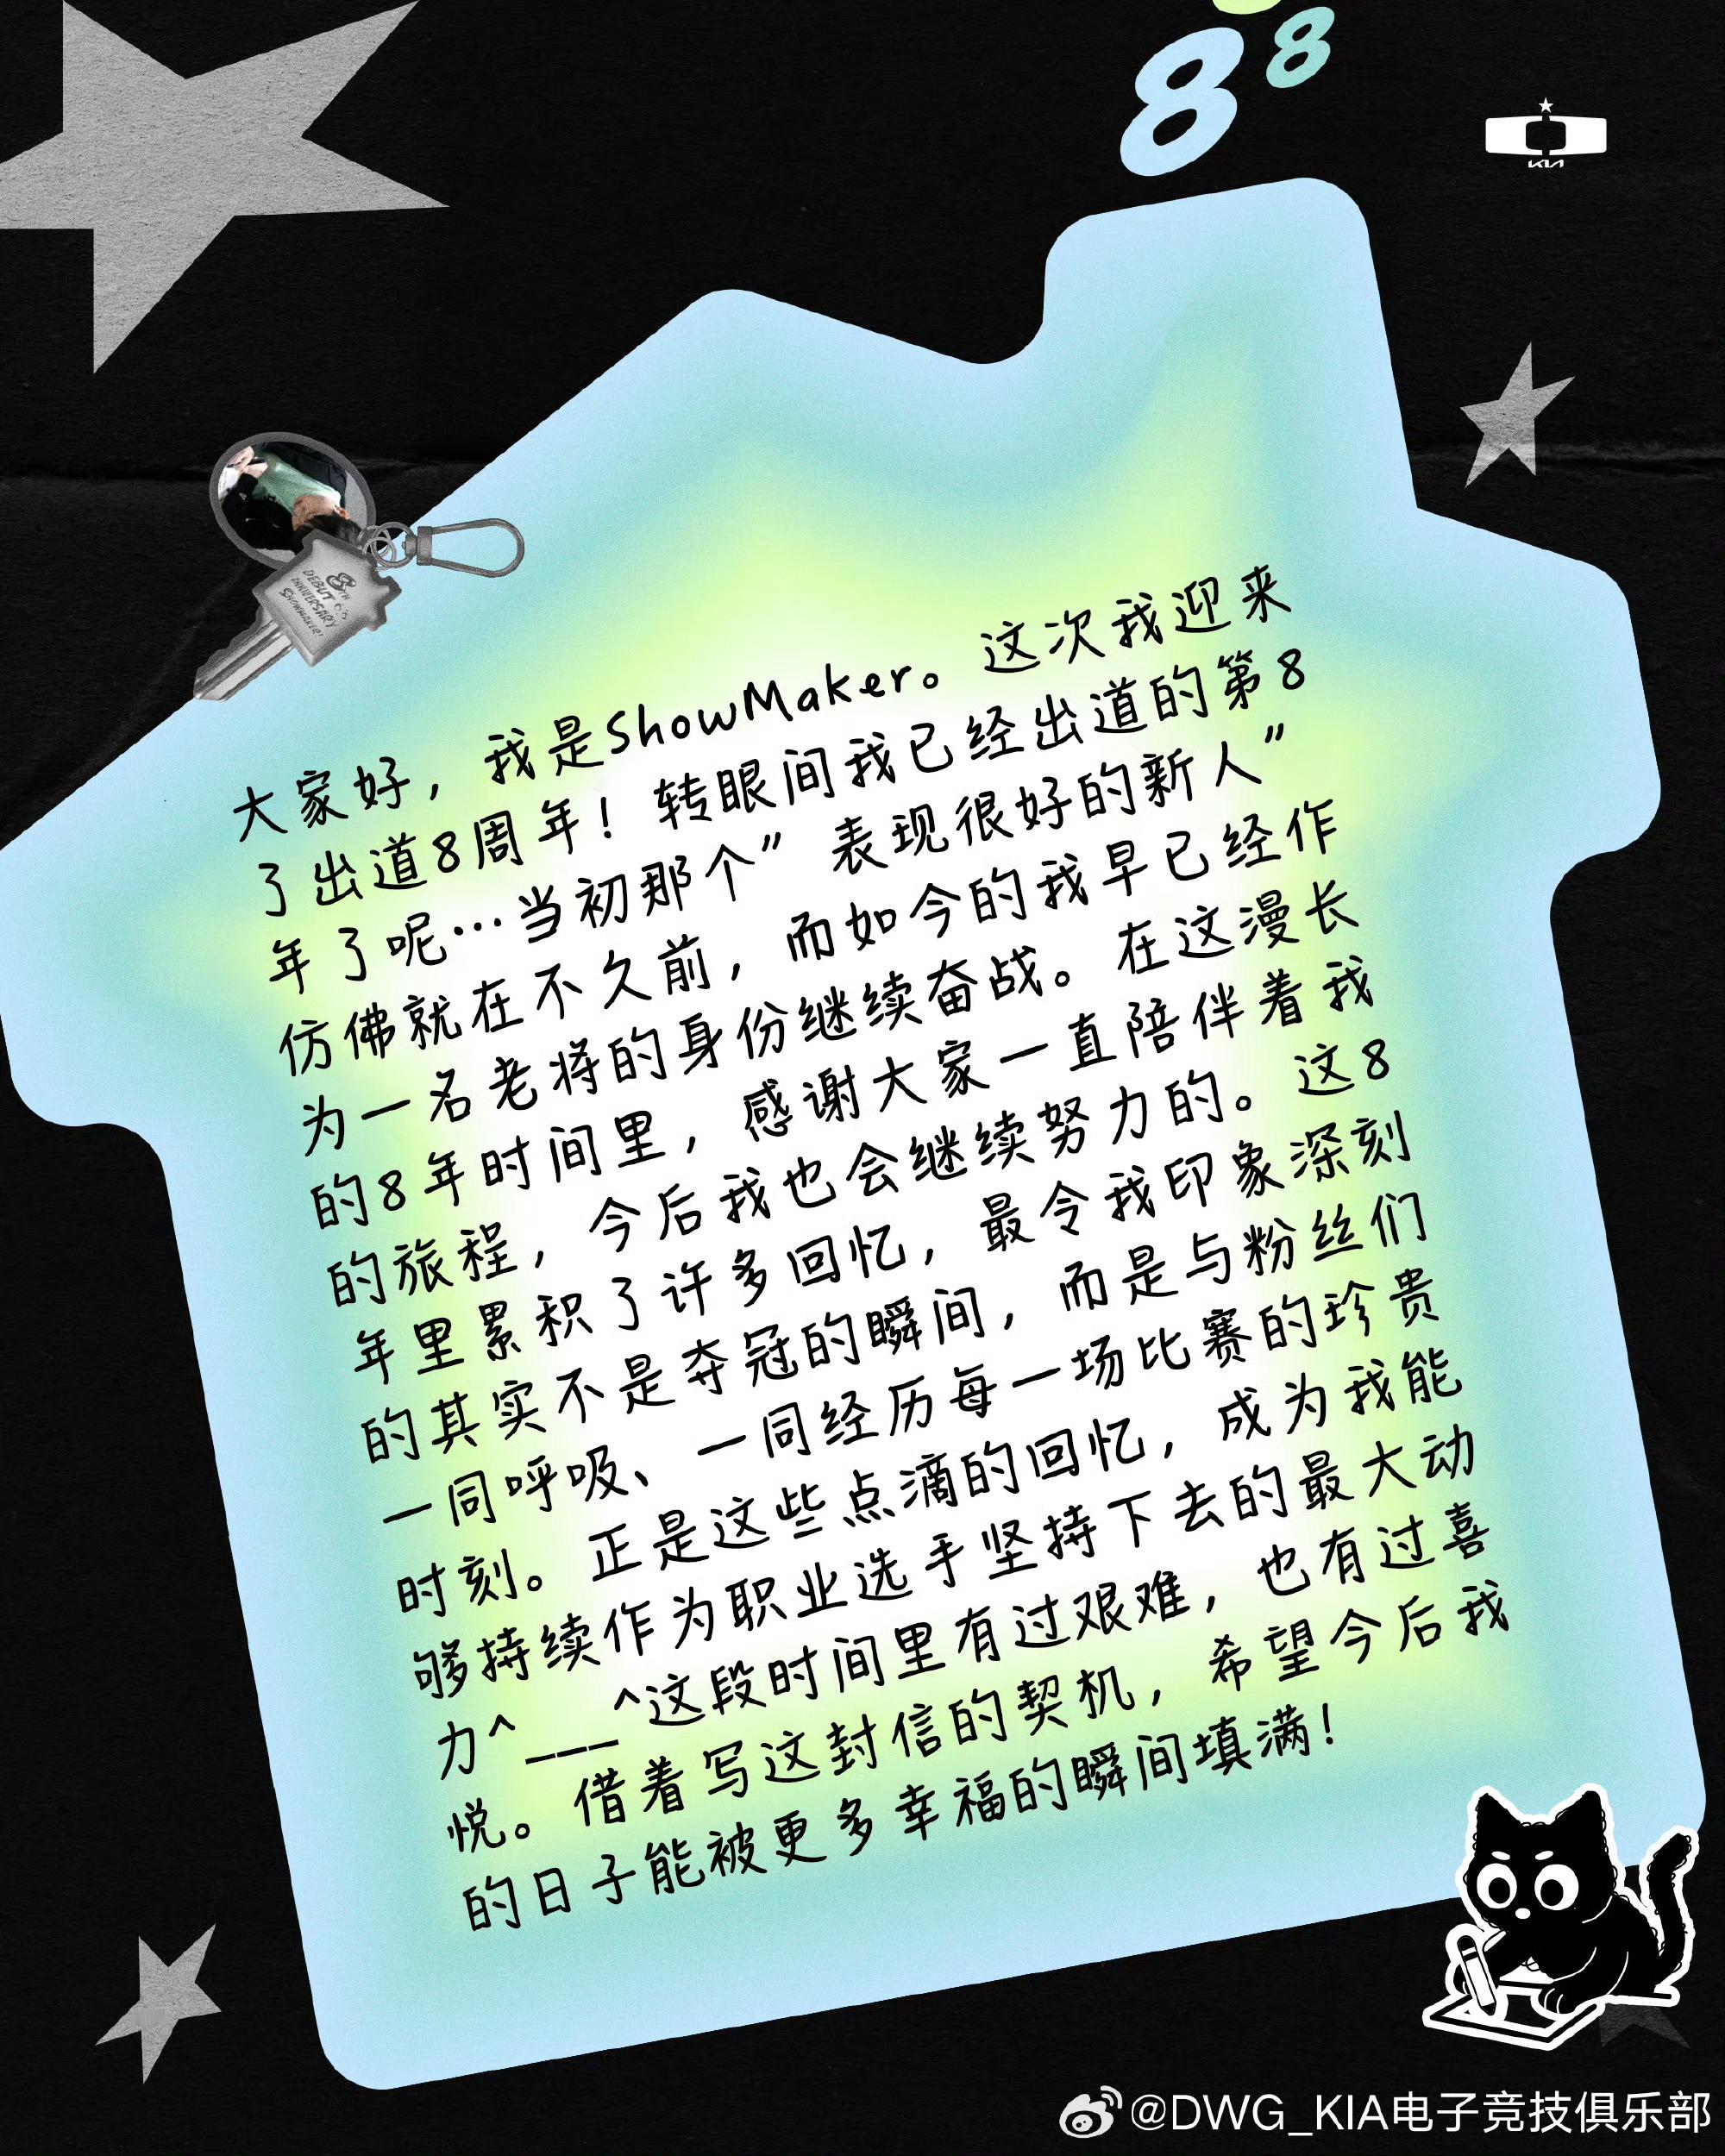 8
8
KIA
8TH
DEBUT
ANNIVERSARY
SHOWMAKER!
大家好，我是ShowMaker。这次我迎来
了出道8周年！转眼间我已经出道的第8
年了呢…当初那个”表现很好的新人”
仿佛就在不久前，而如今的我早已经作
为一名老将的身份继续奋战。在这漫长
的8年时间里，感谢大家一直陪伴着我
的旅程，今后我也会继续努力的。这8
年里累积了许多回忆，最令我印象深刻
的其实不是夺冠的瞬间，而是与粉丝们
一同呼吸、一同经历每一场比赛的珍贵
时刻。正是这些点滴的回忆，成为我能
够持续作为职业选手坚持下去的最大动
力^___^这段时间里有过艰难，也有过喜
悦。借着写这封信的契机，希望今后我
的日子能被更多幸福的瞬间填满！
@DWG_KIA电子竞技俱乐部